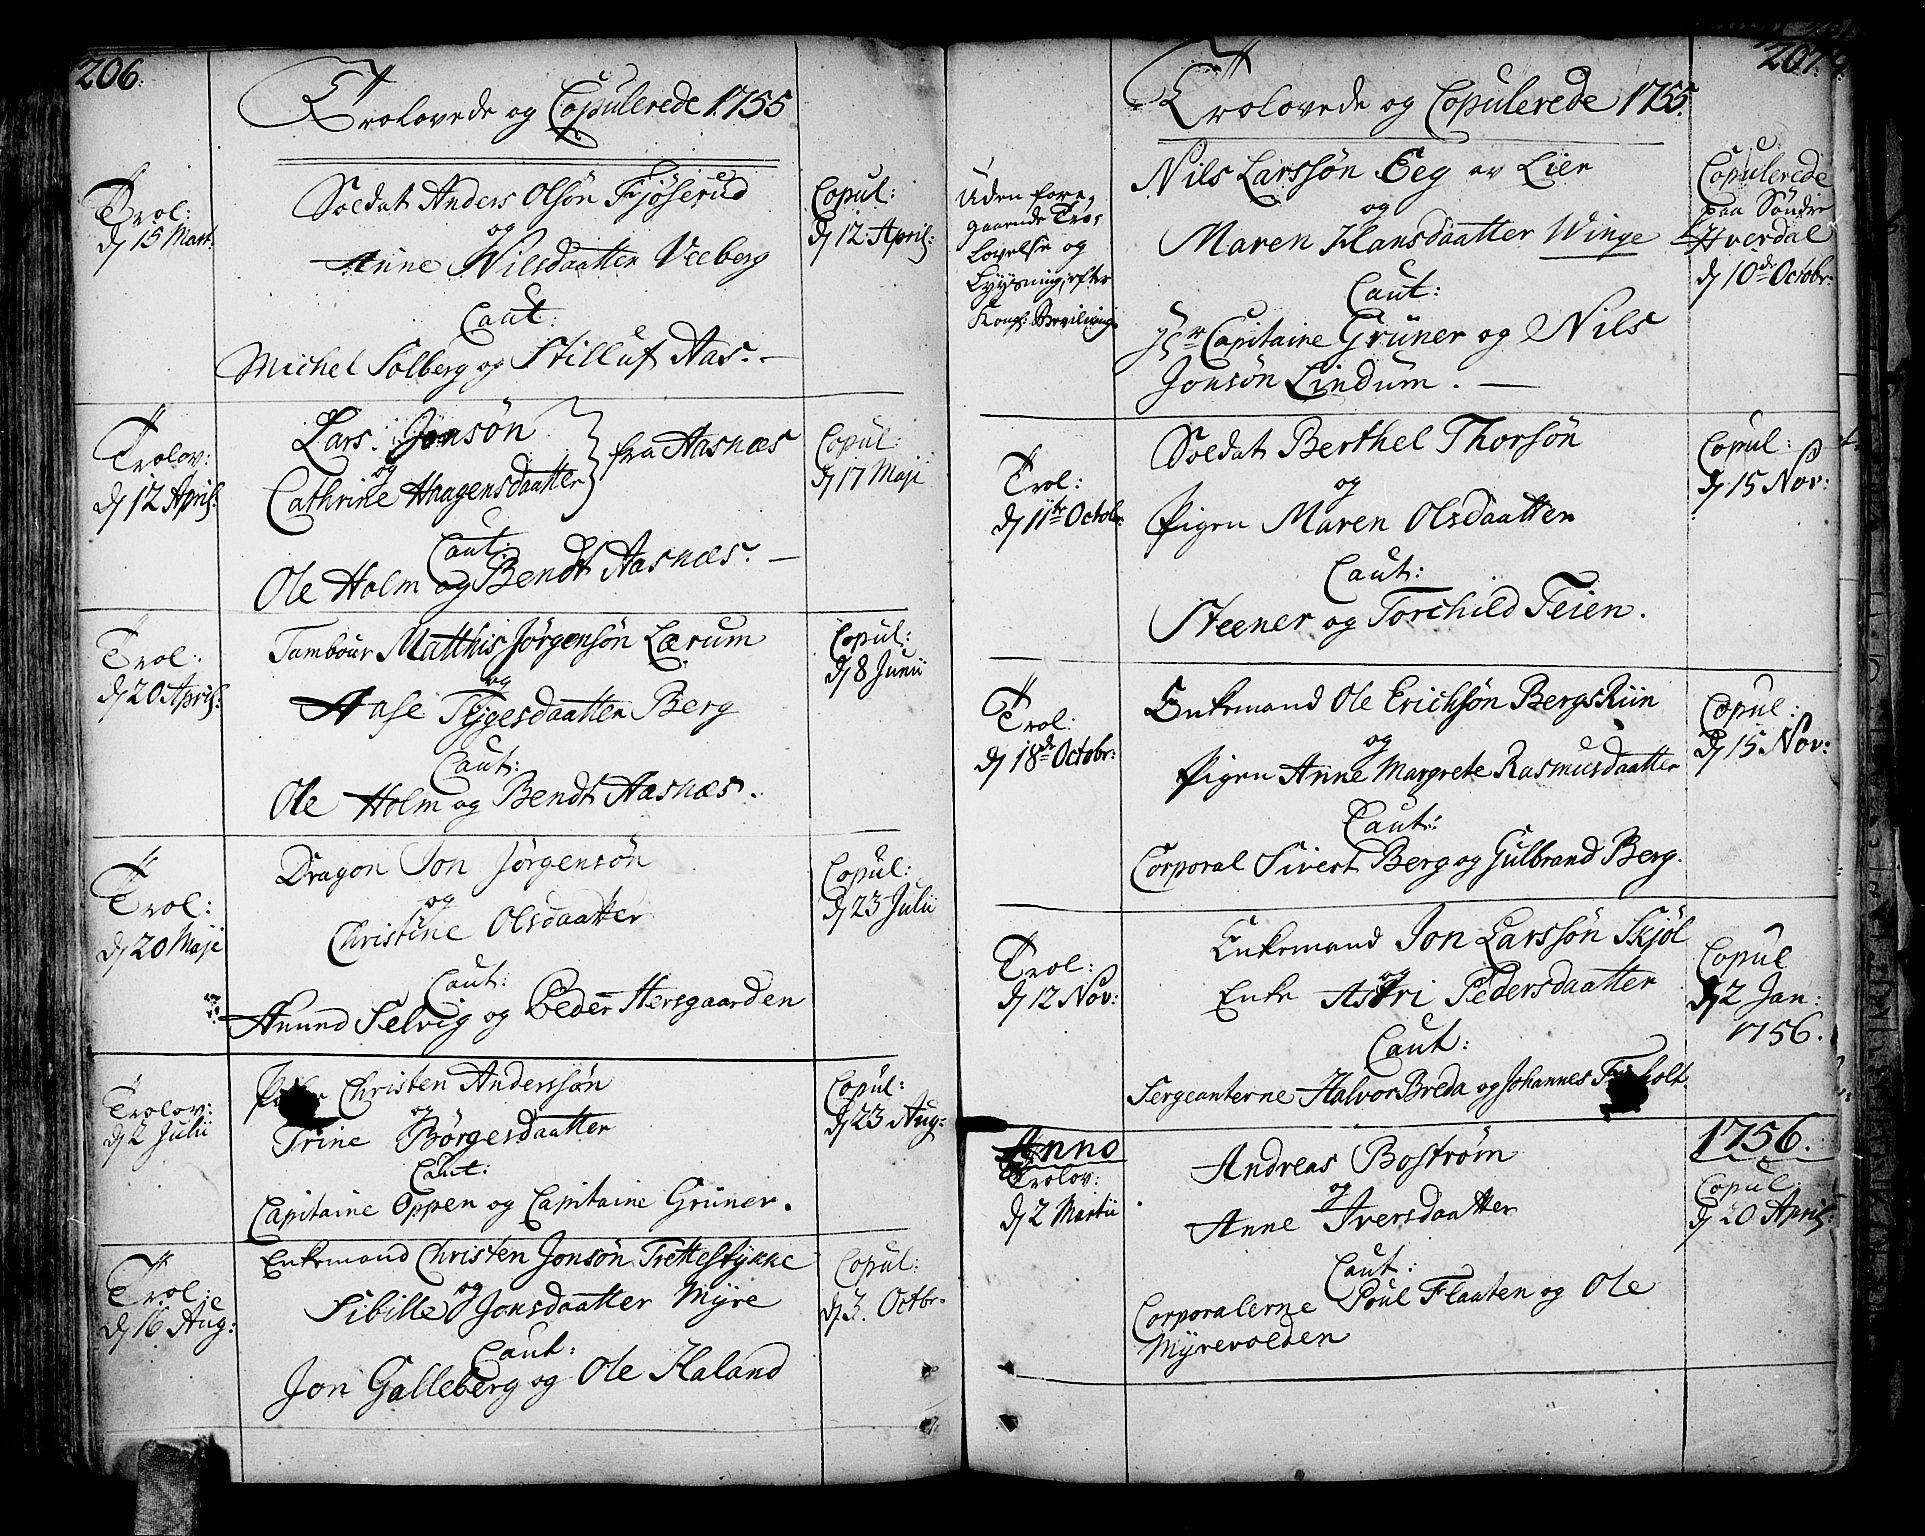 206.
Trolovede og Copulerede 1755
Trol:
d 15 Mart:
Soldat Anders Olsön Fjöserud
og
Anne Nilsdaatter Veeberg
Caut:
Michel Solberg og Stilluf Aas. —
Copul:
d 12 April:
Trolov:
d 12 April:
Lars Jonsön
og
Cathrine Haagensdaatter
fra Aasnæs
Caut:
Ole Holm og Bendt Aasnæs. —
Copul:
d 17 Maji
Trol:
d 20 April:
Tambour Matthis Jörgensön Lærum
og
Aase Tygesdaatter Berg
Caut:
Ole Holm og Bendt Aasnæs.
Copul:
d 8 Junii
Trol:
d 20 Maji
Dragon Jon Jörgensön
og
Christine Olsdaatter
Caut:
Anund Selvig og Peder Hersgaarden
Copul:
d 23 Julii
Trolov:
d 2 Julii
Christen Anderssön
og
Trine Börgesdaatter
Caut:
Capitaine Oppen og Capitaine Grüner.
Copul:
d 23 Aug:
Trol:
d 16 Aug:
Enkemand Christen Jonsön Trettestykke
og
Sibille Jonsdaatter Myre
Caut:
Jon Galleberg og Ole Haland
Copul:
d 3. Octbr:
207
Trolovede og Copulerede 1755.
Uden fore-
gaaende Tro-
lovelse og
Lysning, efter
Kongl: Bevilning
Nils Larssön Eeg av Lier
og
Maren Hansdaatter Winge
Caut:
Hr Capitaine Grüner og Nils
Jonsön Lindum. —
Copulerede
paa Söndre
Hverdal
d 10de Octobr:
Trol:
d 11te Octobr:
Soldat Berthel Thorsön
og
Pigen Maren Olsdaatter
Caut:
Steener og Torchild Teien.
Copul:
d 15 Nov:
Trol:
d 18de Octobr:
Enkemand Ole Erichsön BergsRiin
og
Pigen Anne Margrete Rasmusdaatter
Caut:
Corporal Sivert Berg og Gulbrand Berg.
Copul:
d 15 Nov:
Trol:
d 12 Nov:
Enkemand Jon Larssön Skjöl
og
Enke Astri Pedersdaatter
Caut:
Sergeanterne Halvor Breda og Johannes
Copul
d 2 Jan:
1756.
Anno
1756.
Trolov:
d 2 Martii
Andreas Boström
og
Anne Iversdaatter
Caut:
Corporalerne Poul Flaaten og Ole
Myrevolden
Copul:
d 20 April: